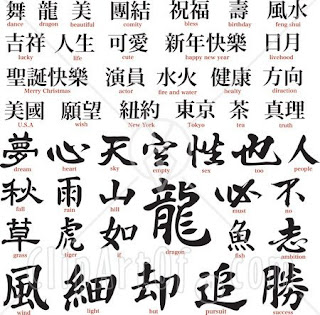 舞 龍 美 團結 祝福 壽 風水
dance dragon beautiful unity blessing birthday feng shui
吉祥 人生 可愛 新年快樂 日月
lucky life cute happy new year livehood
聖誕快樂 演員 水火 健康 方向
Merry Christmas actor fire and water heatxy diraction
美國 願望 紐約 東京 茶 真理
U.S.A wish New York Tokyo tea truth
夢 心 天 空 性 也 人
stream heart sky empty sex too people
秋 雨 山 龍 必 不
fall rain hill dragon must no
草 虎 如 魚 志
grass tiger if fish ambition
風 細 却 追 勝
wind light but pursuit success